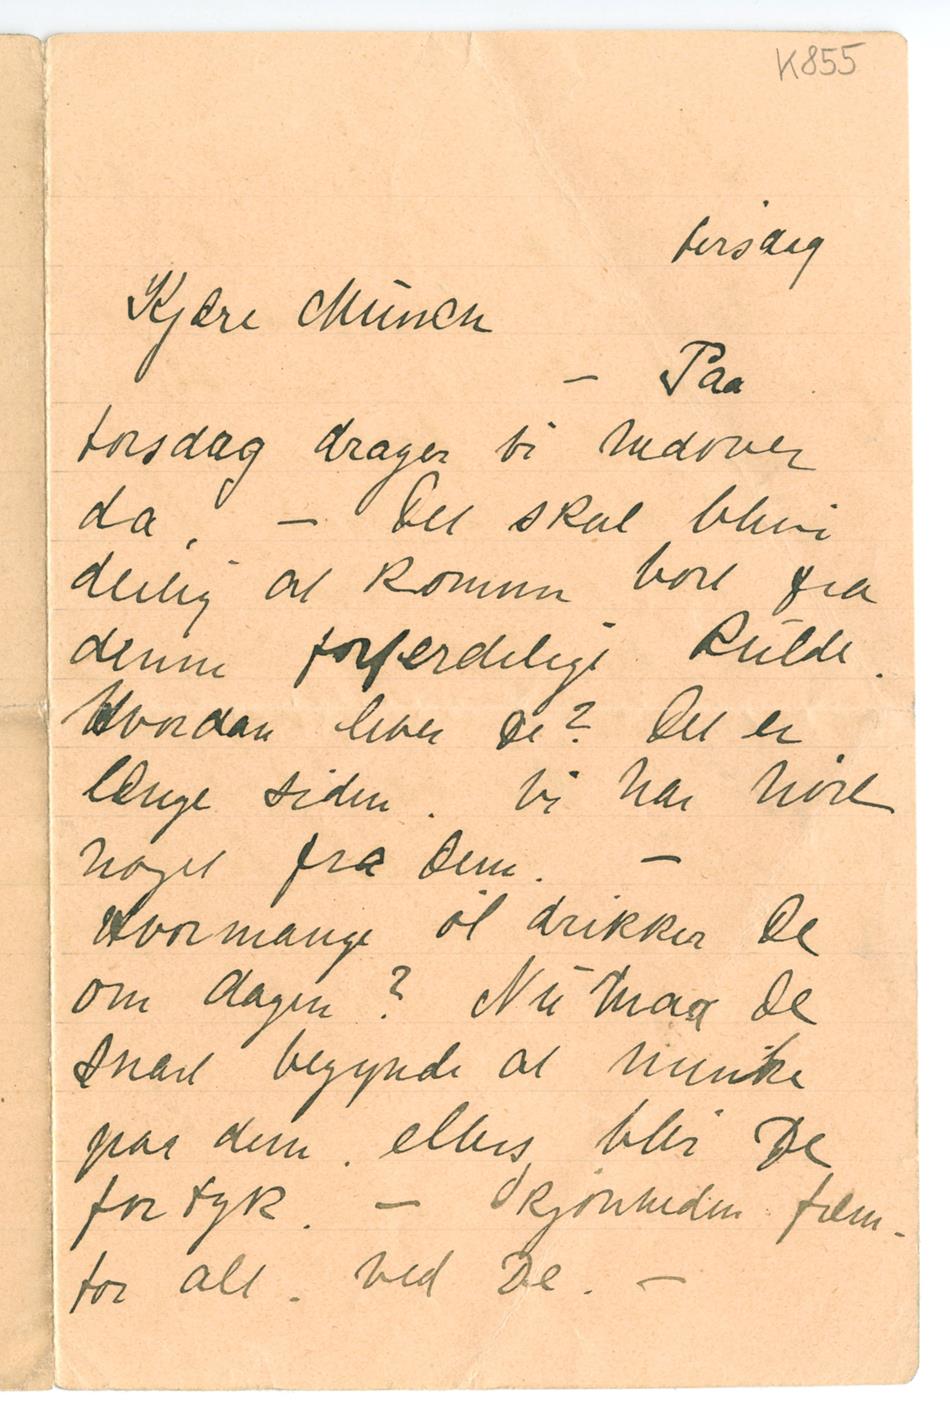 K855
tirsdag
Kjære Munch
– Paa
torsdag drager vi nedover
da, – Det skal blive
deilig at komme bort fra
denne forferdelige kulde.
Hvordan lever De? Det er
længe siden. Vi har hört
noget fra Dem. –
Hvormange öl drikker De
om dagen? Nu maa De
snart begynde at minke
paa dem. ellers blir De
for tyk. – Skjönheden frem-
for alt. ved De. –